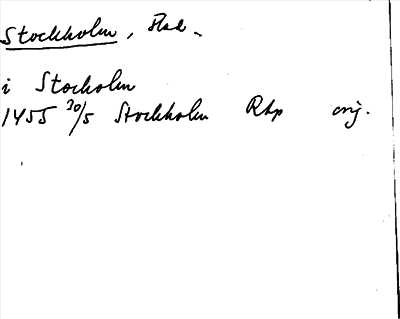 Stockholm, Stad.
i Stocholm
1455 30/5 Stockholm RAp orig.